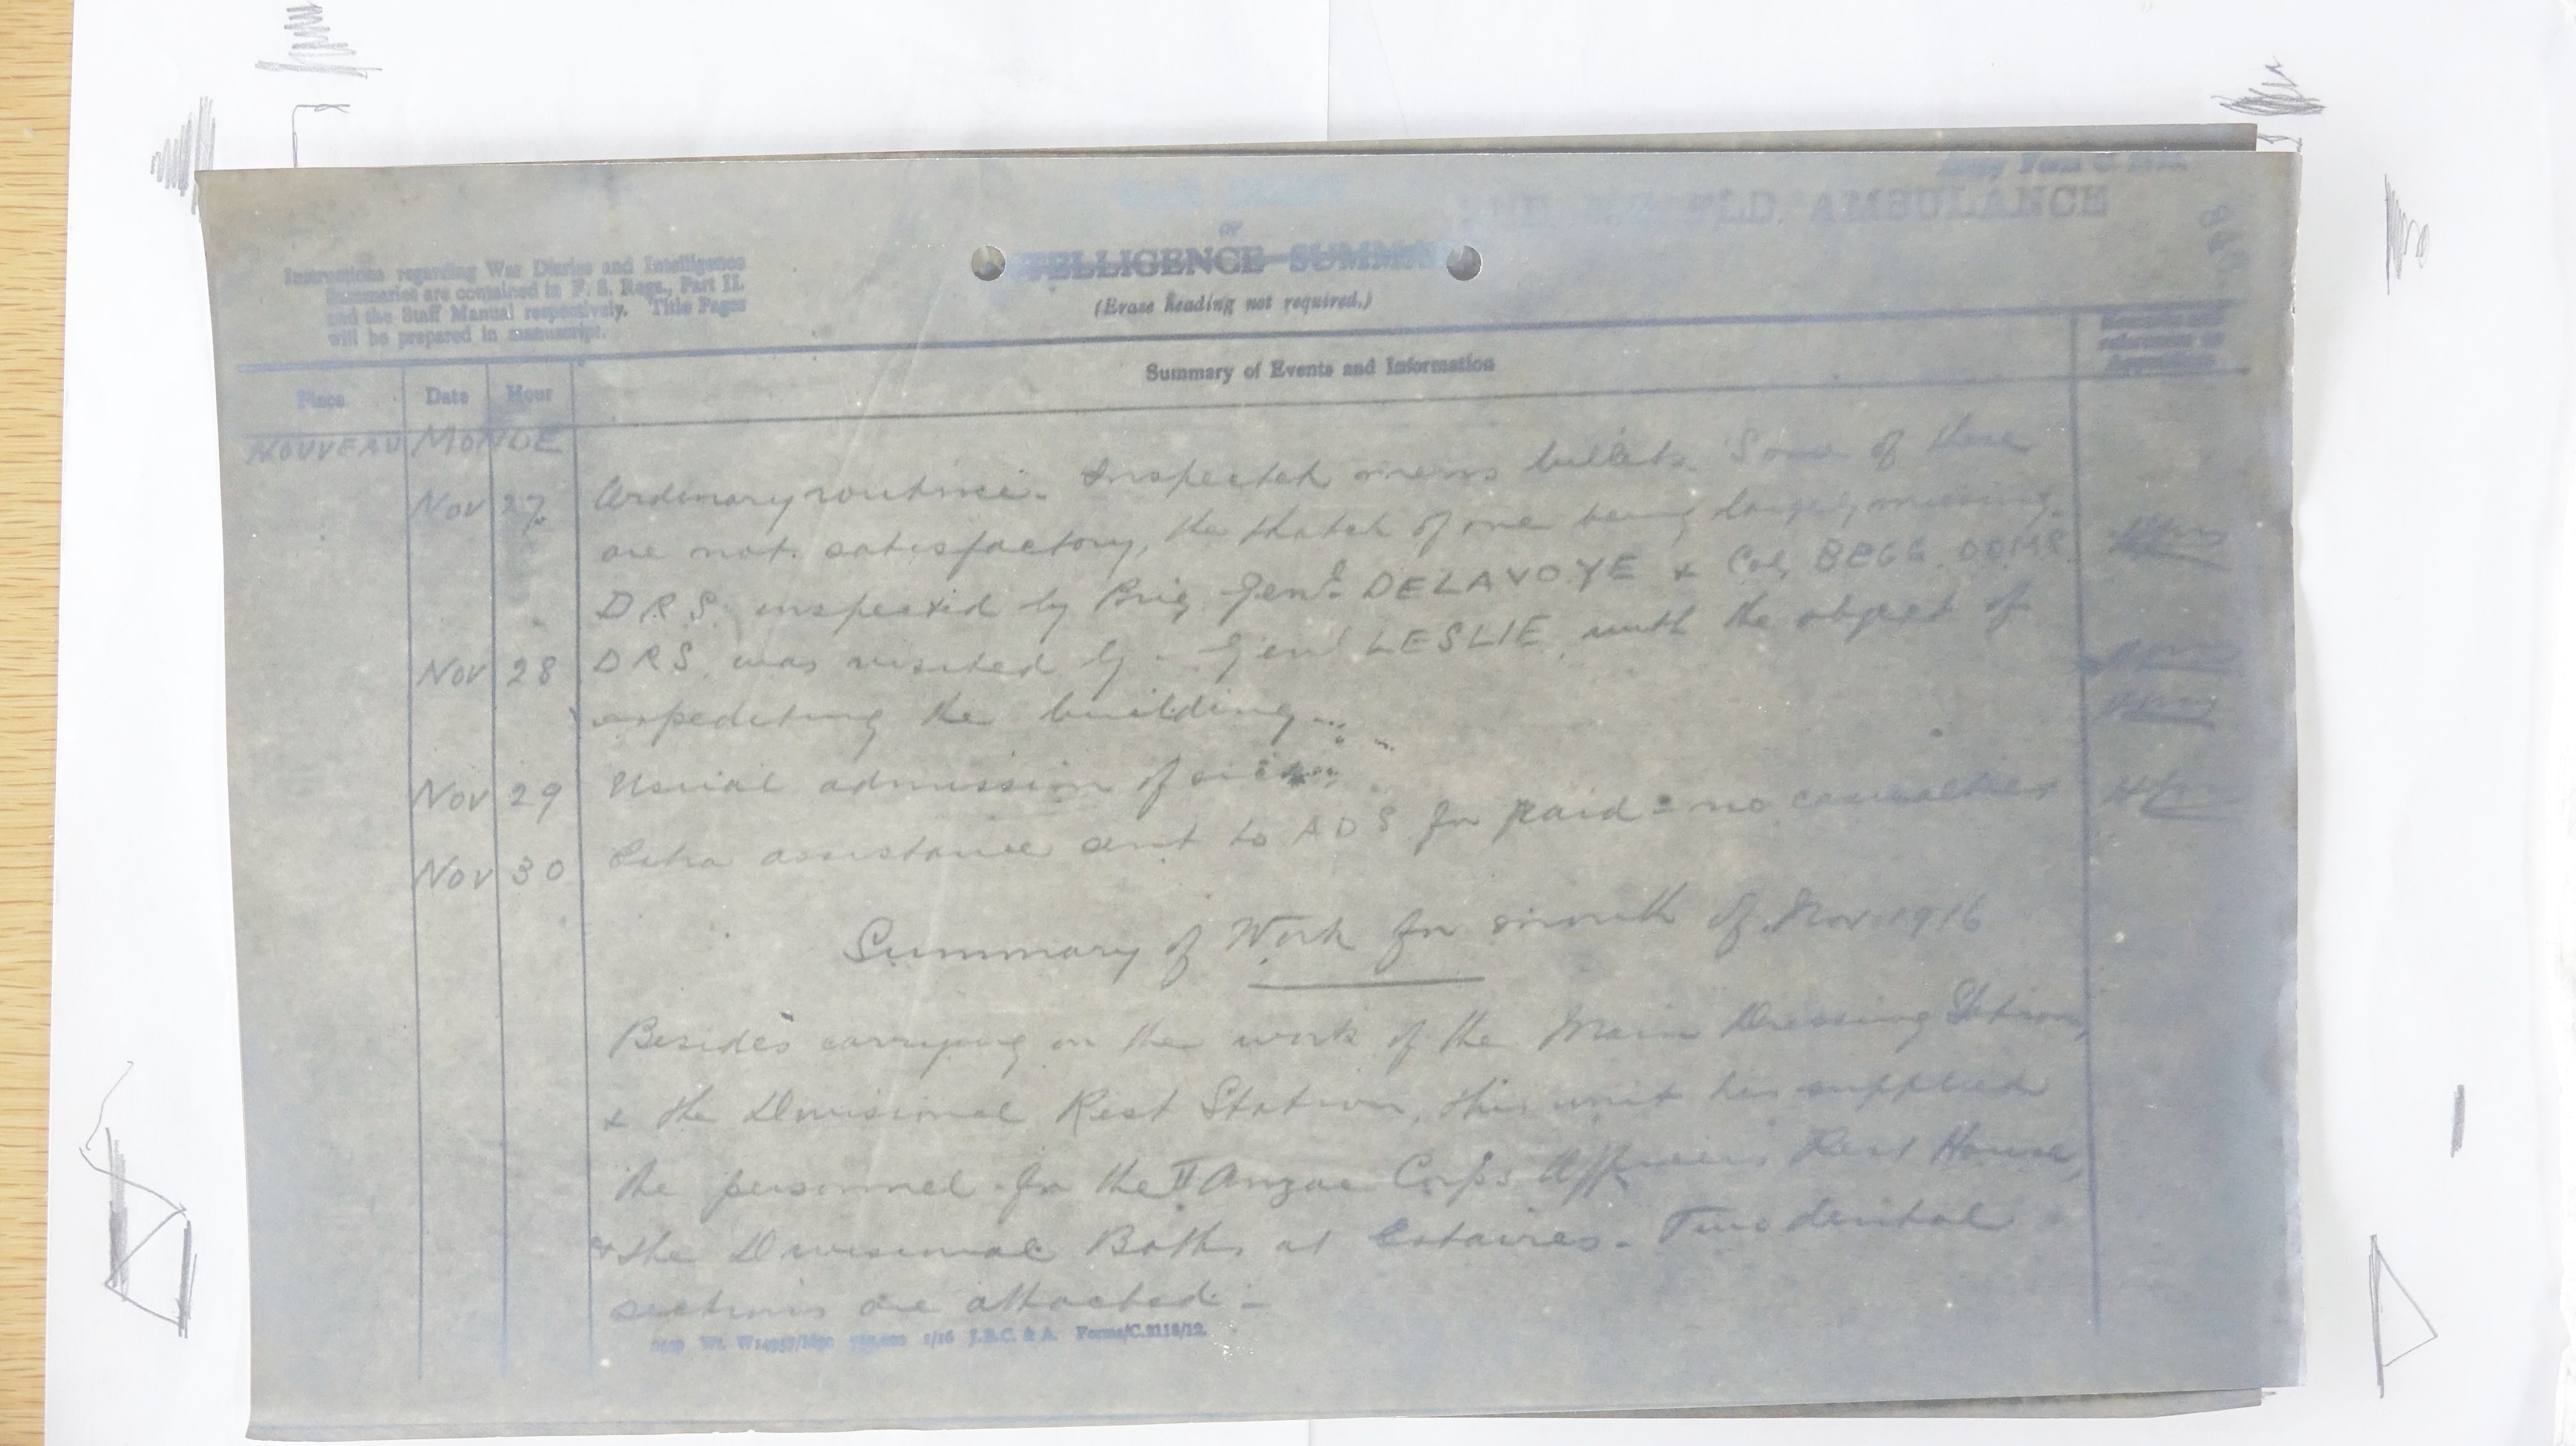 FLD. AMBULANCE
OF
INTELLIGENCE SUMMARY
(Erase heading not required.)
Instructions regarding War Diaries and Intelligence
Summaries are contained in F. S. Regs., Part II.
and the Staff Manual respectively. Title Pages
will be prepared in manuscript.
Summary of Events and Information
Remarks and
references to
Appendices
Place Date Hour
NOUVEAU MONDE
Nov 27 Ordinary routine. Inspected mens billets. Some of these
are not satisfactory, the thatch of one being largely missing.
D.R.S. inspected by Brig Genl. DELAVOYE & Col. BEGG. DDMS
Nov 28 D R S. was visited by Genl LESLIE, with the object of
expediting the building
Nov 29 Usual admission of sick
Nov 30 Extra assistance sent to A D S for Raid = no casualties
Summary of Work for month of Nov. 1916
Besides carrying on the work of the Main Dressing Station,
& the Divisional Rest Station, this unit has supplied
the personnel for the II Anzac Corps Officers Rest House,
& the Divisional Baths at Estaires - Two dental
sections are attached -
1/16 J.B.C. & A. Forms/C.2118/12.